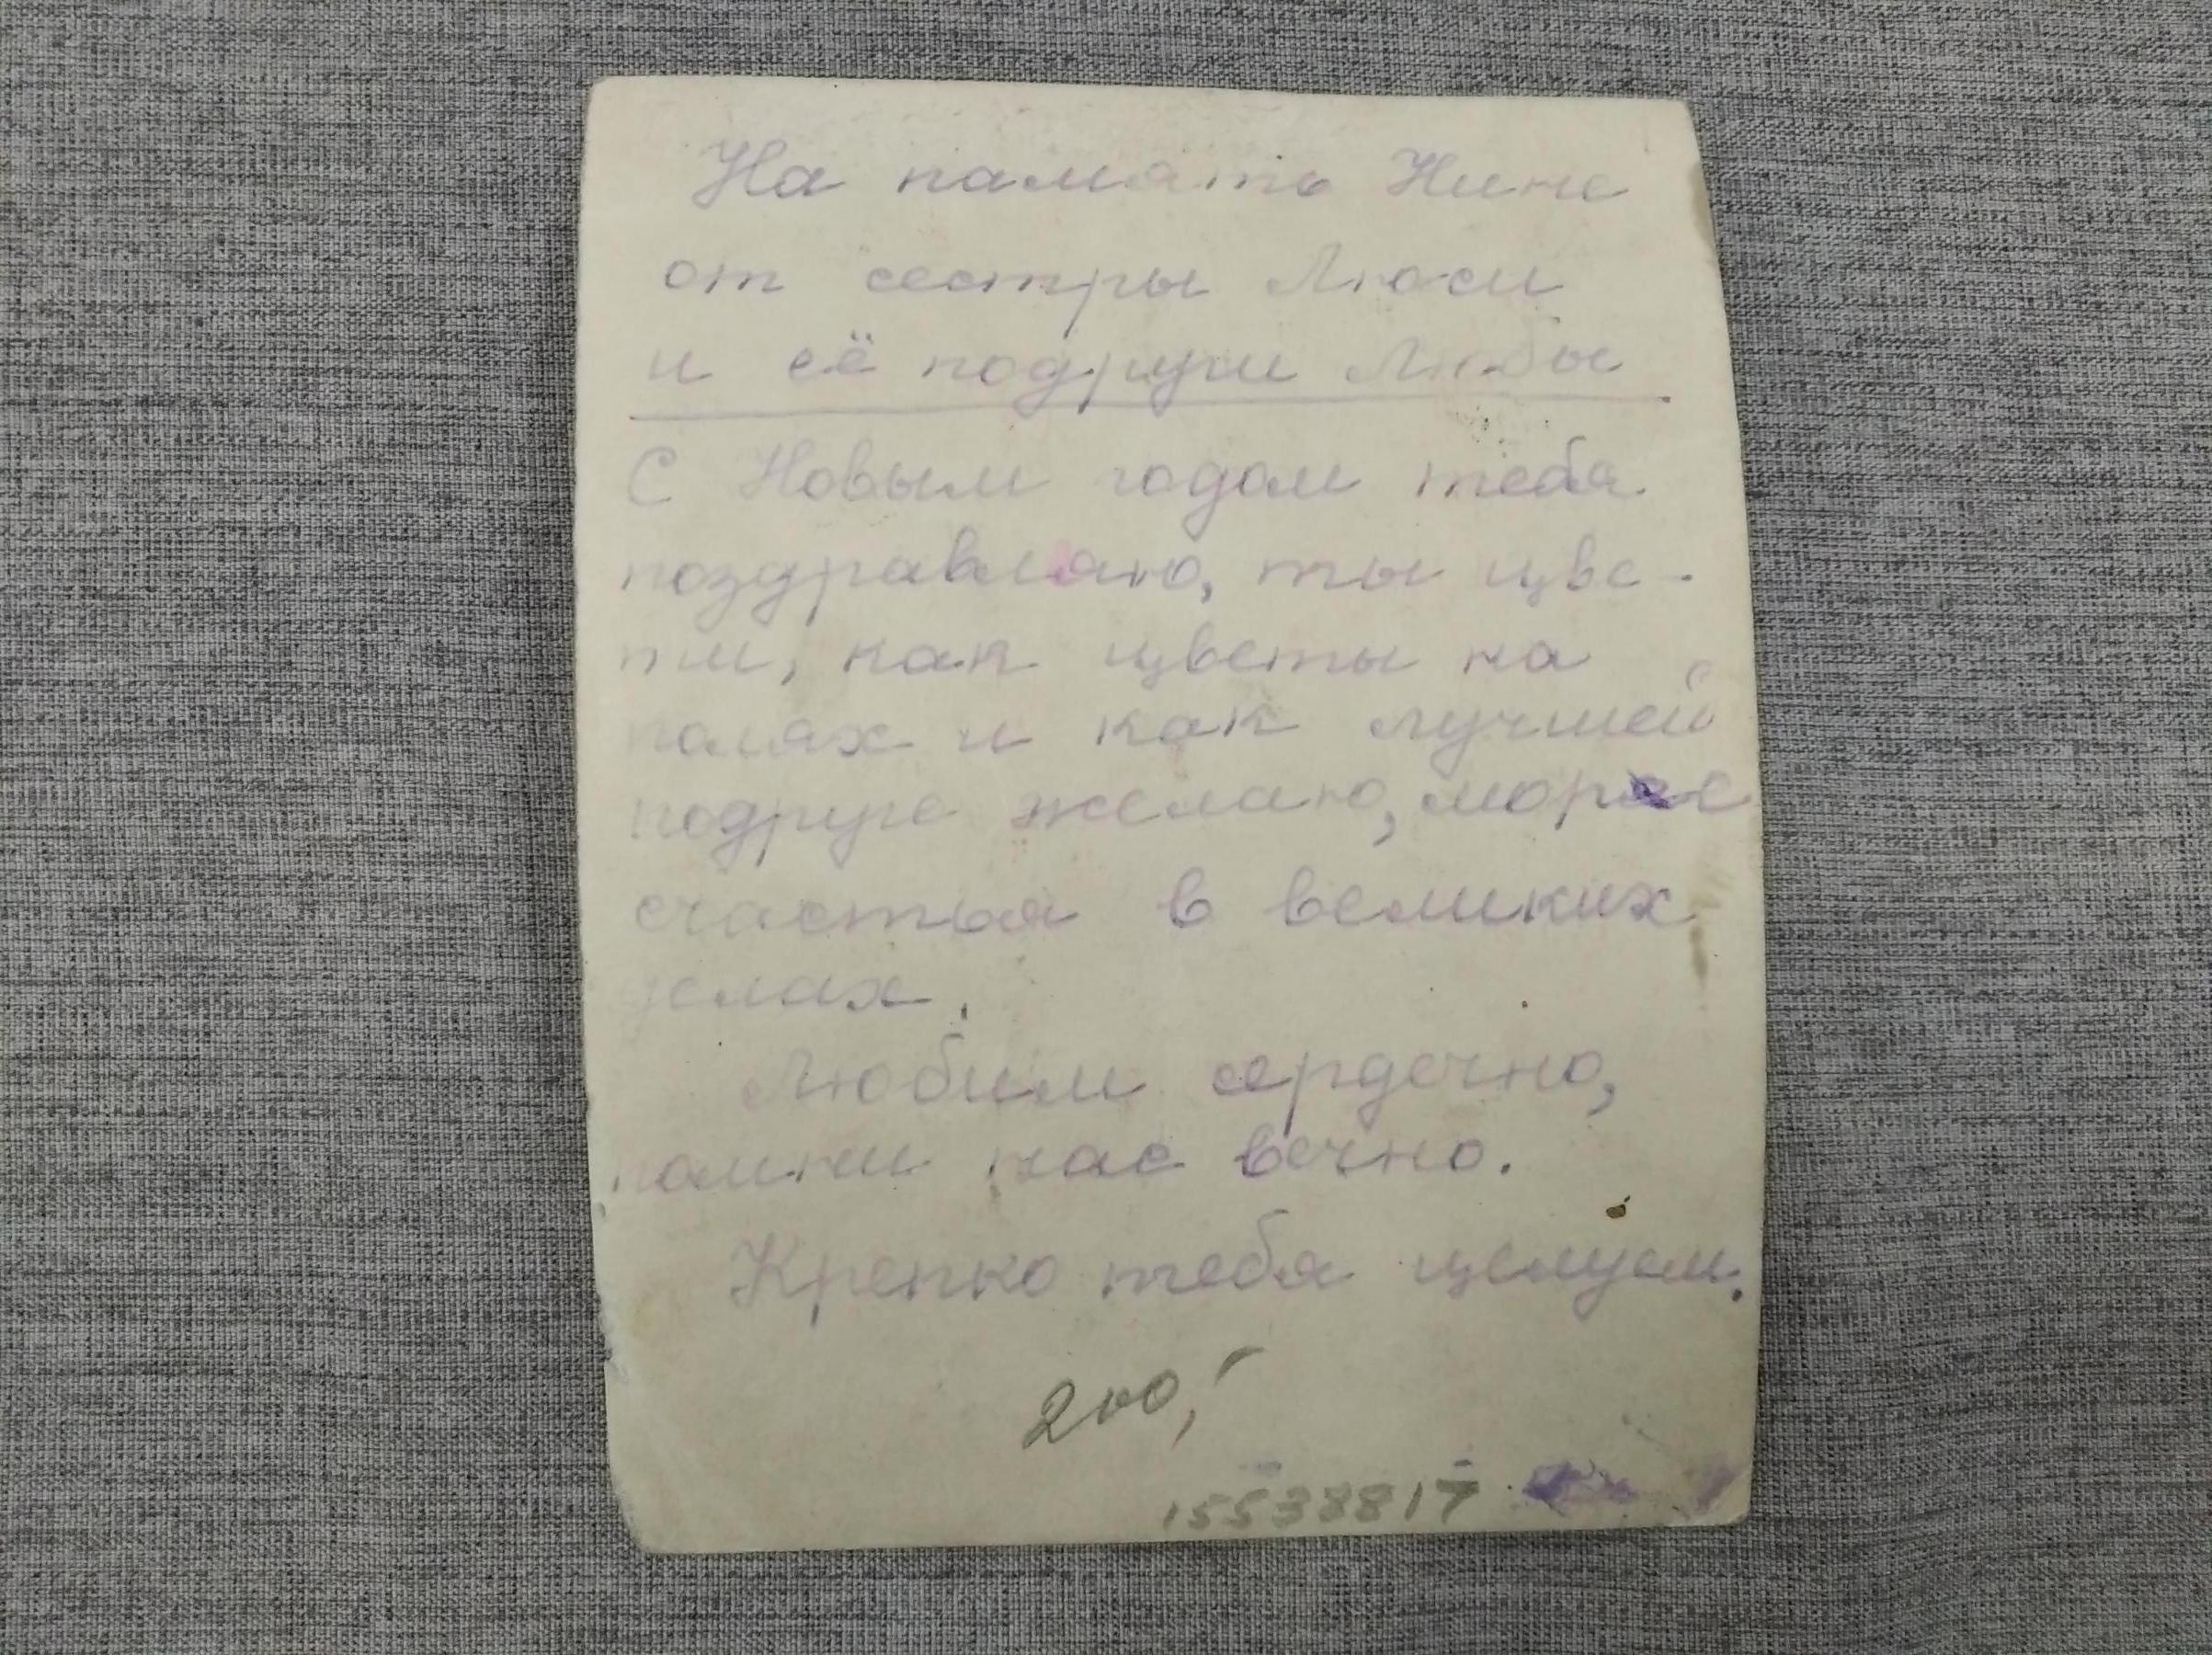 На память Нине
от сестры Люси
и её подруги Любы
С Новым годом тебя
поздравляю, ты цве-
ти, как цветы на
полях и как лучшей
подруге желаю, море
счастья в великих
делах.
Любим сердечно,
помни нас вечно.
Крепко тебя целуем.
200,-
15538817